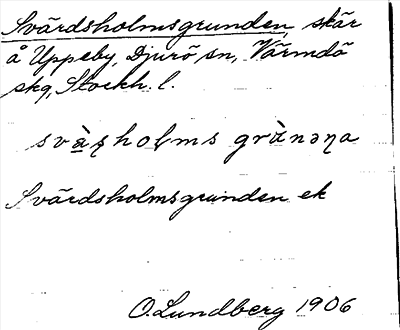 Svärdsholmsgrunden, skär
å Uppeby, Djurö sn, Värmdö
skg, Stockh. l.
Svärdsholmsgrunden ek
O. Lundberg 1906